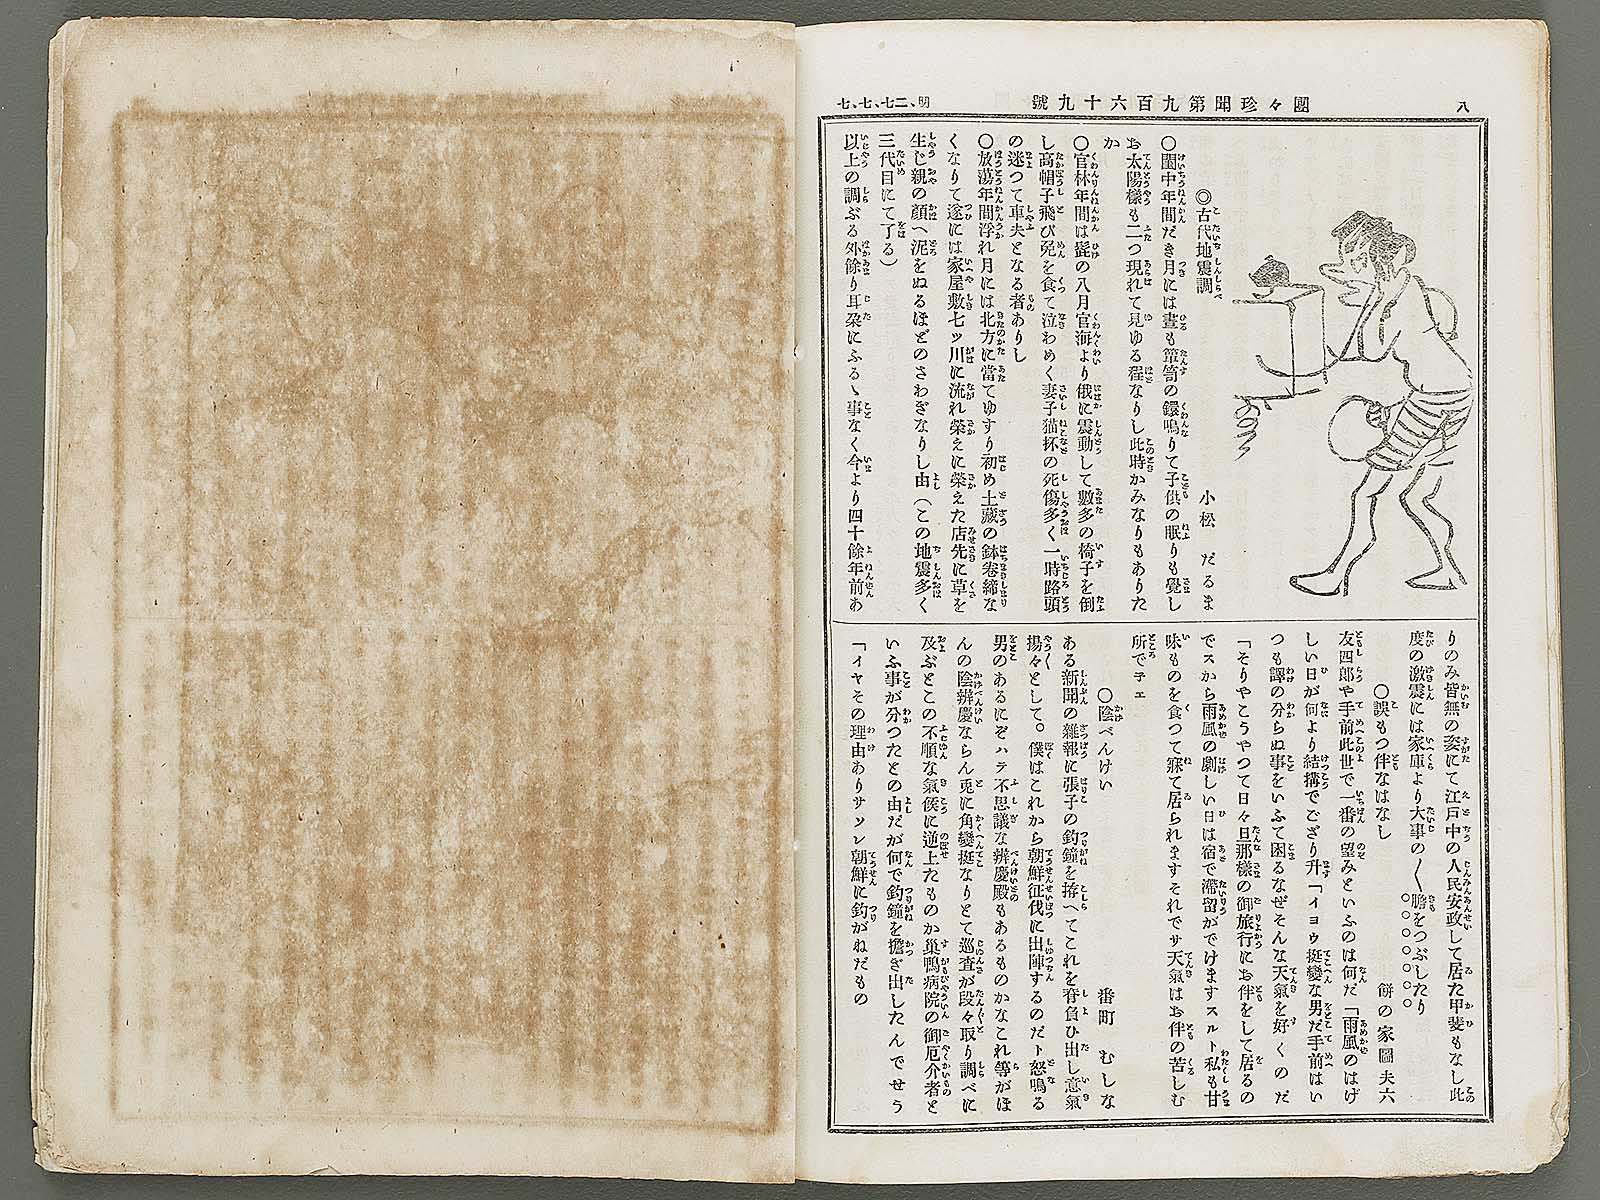 八
團々珍聞第九百六十九號
明、二七、七、七
◎古代地震調
小松 だるま
〇閨中年間だき月には晝も簞笥の鐶鳴りて子供の眠りも覺し
お太陽樣も二つ現れて見ゆる程なりし此時かみなりもありた
か
〇官林年間は髭の八月官海より俄に震動して數多の椅子を倒
し高帽子飛び免を食て泣わめく妻子猫抔の死傷多く一時路頭
の迷つて車夫となる者ありし
〇放蕩年間浮れ月には北方に當てゆすり初め土藏の鉢卷締な
くなりて遂には家屋敷七ッ川に流れ榮えに榮えた店先に草を
生じ親の顏へ泥をぬるほどのさわぎなりし由(この地震多く
三代目にて了る)
以上の調ぶる外餘り耳朶にふるゝ事なく今より四十餘年前あ
りのみ皆無の姿にて江戸中の人民安政して居た甲斐もなし此
度の激震には家庫より大事の〱膽をつぶしたり
〇誤もつ伴なはなし
餅の家圖夫六
友四郎や手前此世で一番の望みといふのは何だ「雨風のはげ
しい日が何より結搆でござり升「イヨウ挺變な男だ手前はい
つも譯の分らぬ事をいふて困るなぜそんな天氣を好くのだ
「そりやこうやつて日々旦那樣の御旅行にお伴をして居るの
でスから雨風の劇しい日は宿で滯留がでけますスルト私も甘
味ものを食つて寐て居られますそれでサ天氣はお伴の苦しむ
所で子ェ
〇陰べんけい
番町 むしな
ある新聞の雜報に張子の釣鐘を拵へてこれを脊負ひ出し意氣
揚々として。僕はこれから朝鮮征伐に出陣するのだト怒鳴る
男のあるにぞハテ不思議な辨慶殿もあるものかなこれ等がほ
んの陰辨慶ならん兎に角變挺なりとて巡査が段々取り調べに
及ぶとこの不順な氣候に逆上たものか巢鴨病院の御厄介者と
いふ事が分つたとの由だが何で釣鐘を擔ぎ出したんでせう
「イヤその理由ありサソレ朝鮮に釣がねだもの